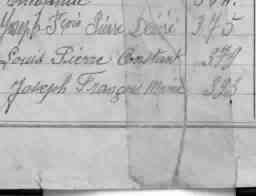 Joseph Fçois Pierre Désiré 375
Louis Pierre Constant 379
Joseph François Marie 393